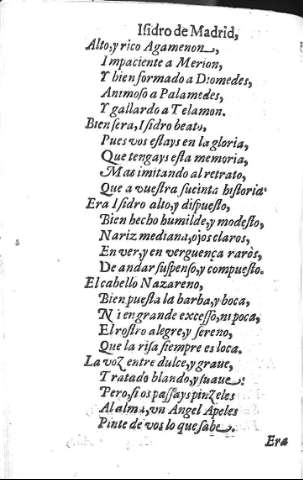 Isidro de Madrid,
Alto, y rico Agamenon,
Impaciente a Merion,
Y bien formado a Diomedes,
Animoso a Palamedes,
Y gallardo a Telamon.
Bien sera, Isidro beato,
Pues vos estays en la gloria,
Que tengays esta memoria,
Mas imitando al retrato,
Que a vuestra sucinta historia.
Era Isidro alto, y dispuesto,
Bien hecho humilde, y modesto,
Nariz mediana, ojos claros,
En ver, y en verguença raros,
De andar suspenso, y compuesto.
El cabello Nazareno,
Bien puesta la barba, y boca,
Ni en grande excesso, ni poca,
El rostro alegre, y sereno,
Que la risa siempre es loca.
La voz entre dulce, y graue,
Tratado blando, y suaue:
Pero, si os passays pinzeles
Al alma, vn Angel Apeles
Pinte de vos lo que sabe.
Era